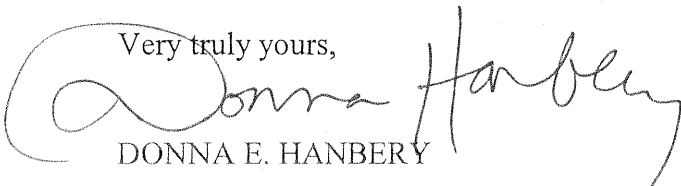 Very truly yours,
Donna Hanbery
DONNA E. HANBERY